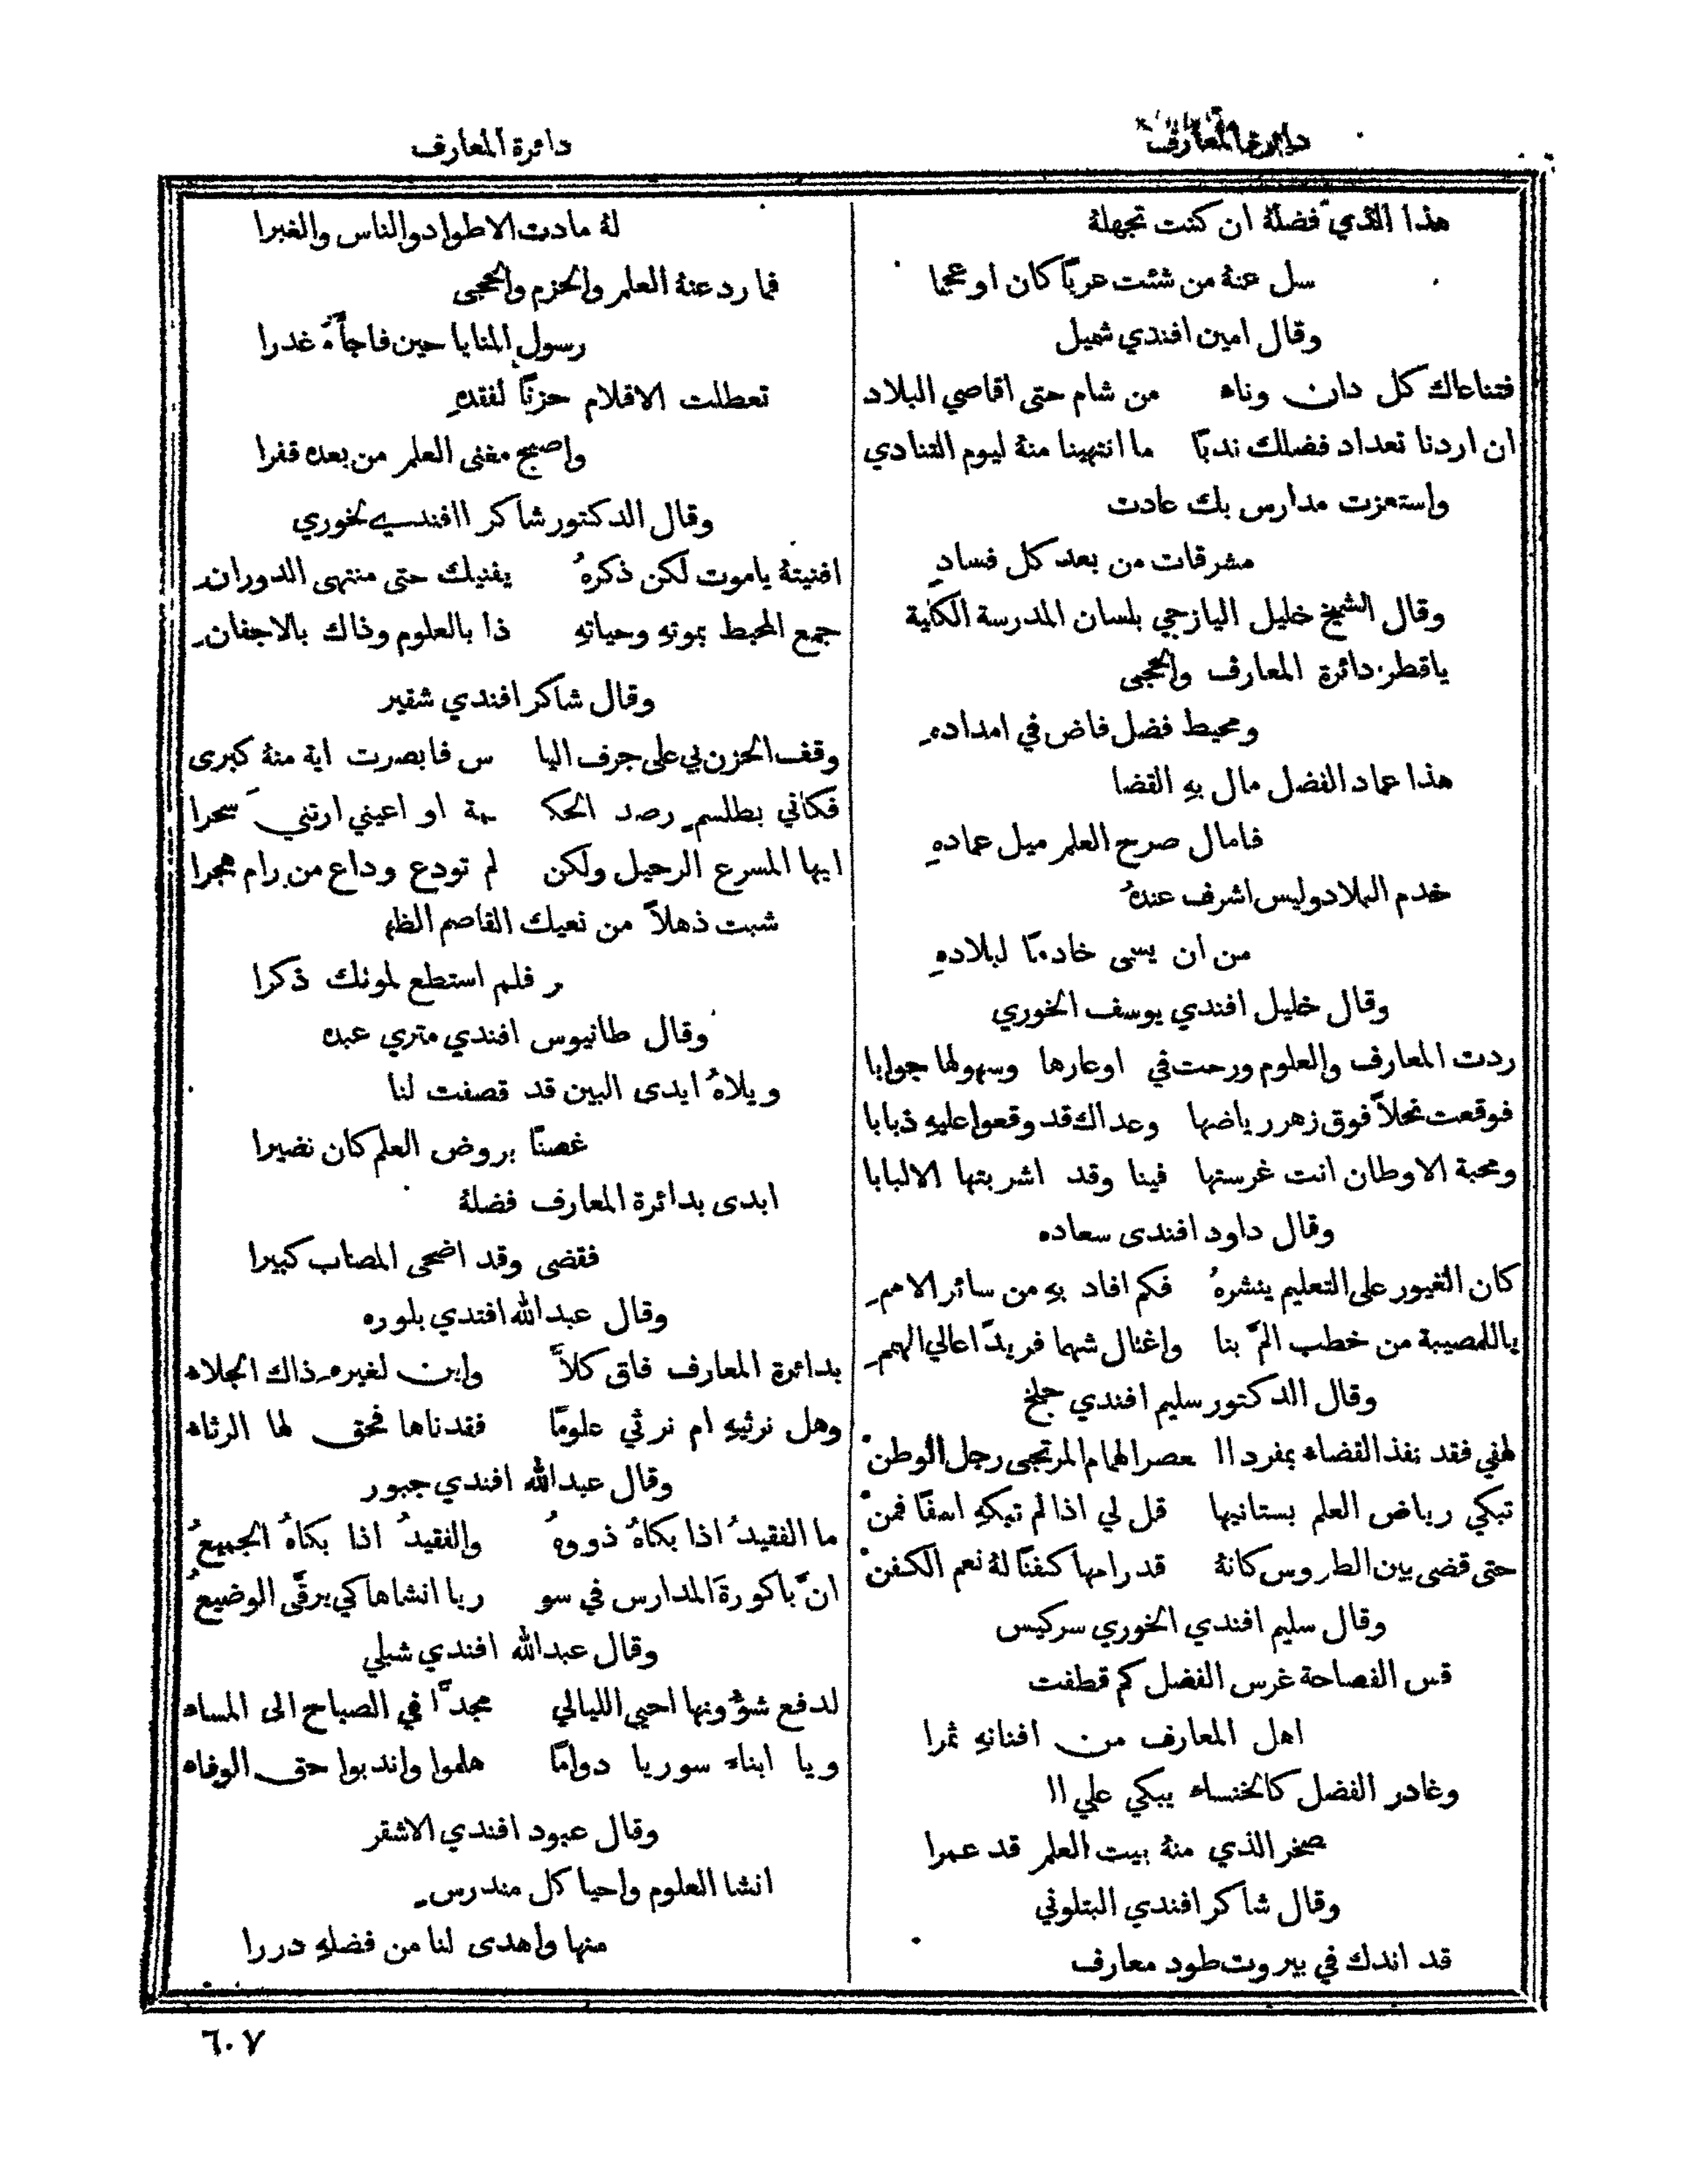 دائرة المعارف
دائرة المعارف
هذا الذي فضلهُ ان كنت تجهلهُ
سل عنهُ من شئت عربًا كان او عجما
وقال امين افندي شميل
فتناءاك كل دان وناء من شام حتى اقاصي البلاد
ان اردنا تعداد فضلك ندبًا ما انتهينا منهُ ليوم التنادي
واستعزت مدارس بك عادت
مشرقات من بعد كل فسادِ
وقال الشيخ خليل اليازجي بلسان المدرسة الكلية
ياقطر دائرة المعارف والحجى
ومحيط فضل فاض في امدادهِ
هذا عماد الفضل مال بهِ القضا
فامال صرح العلم ميل عمادهِ
خدم البلاد وليس اشرف عندهُ
من ان يسمى خادمًا لبلادهِ
وقال خليل افندي يوسف الخوري
ردت المعارف والعلوم ورحت في اوعارها وسهولها جوابا
فوقعت نحلاً فوق زهر رياضها وعداك قد وقعوا عليهِ ذبابا
ومحبة الاوطان انت غرستها فينا وقد اشربتها الالبابا
وقال داود افندى سعاده
كان الغيور على التعليم ينشرهُ فكم افاد بهِ من سائر الاممِ
ياللمصيبة من خطب المَّ بنا واغتال شهما فريدًا عالي الهممِ
وقال الدكتور سليم افندي جلخ
لهفي فقد نفذ القضاء بمفرد ال عصر الهمام المرتجى رجل الوطنْ
تبكي رياض العلم بستانيها قل لي اذا لم تبكهِ اسفًا فمنْ
حتى قضى بين الطروس كانهُ قد رامها كفنًا لهُ نعم الكفنْ
وقال سليم افندي الخوري سركيس
قس الفصاحة غرس الفضل كم قطفت
اهل المعارف من افنانهِ ثمرا
وغادر الفضل كالخنساء يبكي علي ال
صخر الذي منهُ بيت العلم قد عمرا
وقال شاكر افندي البتلوني
قد اندك في بيروت طود معارف
لهُ مادت الاطواد والناس والغبرا
فما رد عنهُ العلم والحزم والحجى
رسول المنايا حين فاجأَهُ غدرا
تعطلت الاقلام حزنًا لفقدهِ
واصبح مغنى العلم من بعده قفرا
وقال الدكتور شاكر اافندي لخوري
افنيتهُ ياموت لكن ذكرهُ يفنيك حتى منتهى الدورانِ
جمع المحيط بموتهِ وحياتهِ ذا بالعلوم وذاك بالاجفانِ
وقال شاكر افندي شقير
وقف الحزن بي على جرف اليا س فابصرت اية منهُ كبرى
فكاني بطلسمِ رصد الحك مة او اعيني ارتني سحرا
ايها المسرع الرحيل ولكن لم تودع وداع من رام هجرا
شبت ذهلاً من نعيك القاصم الظه
ر فلم استطع لموتك ذكرا
وقال طانيوس افندي متري عبده
ويلاهُ ايدى البين قد قصفت لنا
غصنًا بروض العلم كان نضيرا
ابدى بدائرة المعارف فضلهُ
فقضى وقد اضحى المصاب كبيرا
وقال عبدالله افتدي بلوره
بدائرة المعارف فاق كلاًّ واين لغيرهِ ذاك الجلاء
وهل نرثيهِ ام نرثي علومًا فقدناها فحق لها الرثاء
وقال عبدالله افندي جبور
ما الفقيدُ اذا بكاهُ ذووهُ والفقيدُ اذا بكاهُ الجميعُ
انَّ باكورةَ المدارس في سو ريا انشاها كي يرقَّى الوضيعُ
وقال عبدالله افندي شبلي
لدفع شؤونها احيي الليالي مجدًّا في الصباح الى المساء
ويا ابناء سوريا دوامًا هلموا واندبوا حق الوفاء
وقال عبود افندي الاشقر
انشا العلوم واحيا كل مندرسِ
منها واهدى لنا من فضلهِ دررا
٦٠٧